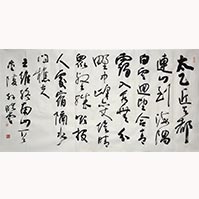 太乙近天都
連山到海隅
白雲迴望合青
靄入看無分
野中峰變陰晴
眾壑殊欲投
人處宿隔水
問樵夫
王維終南山